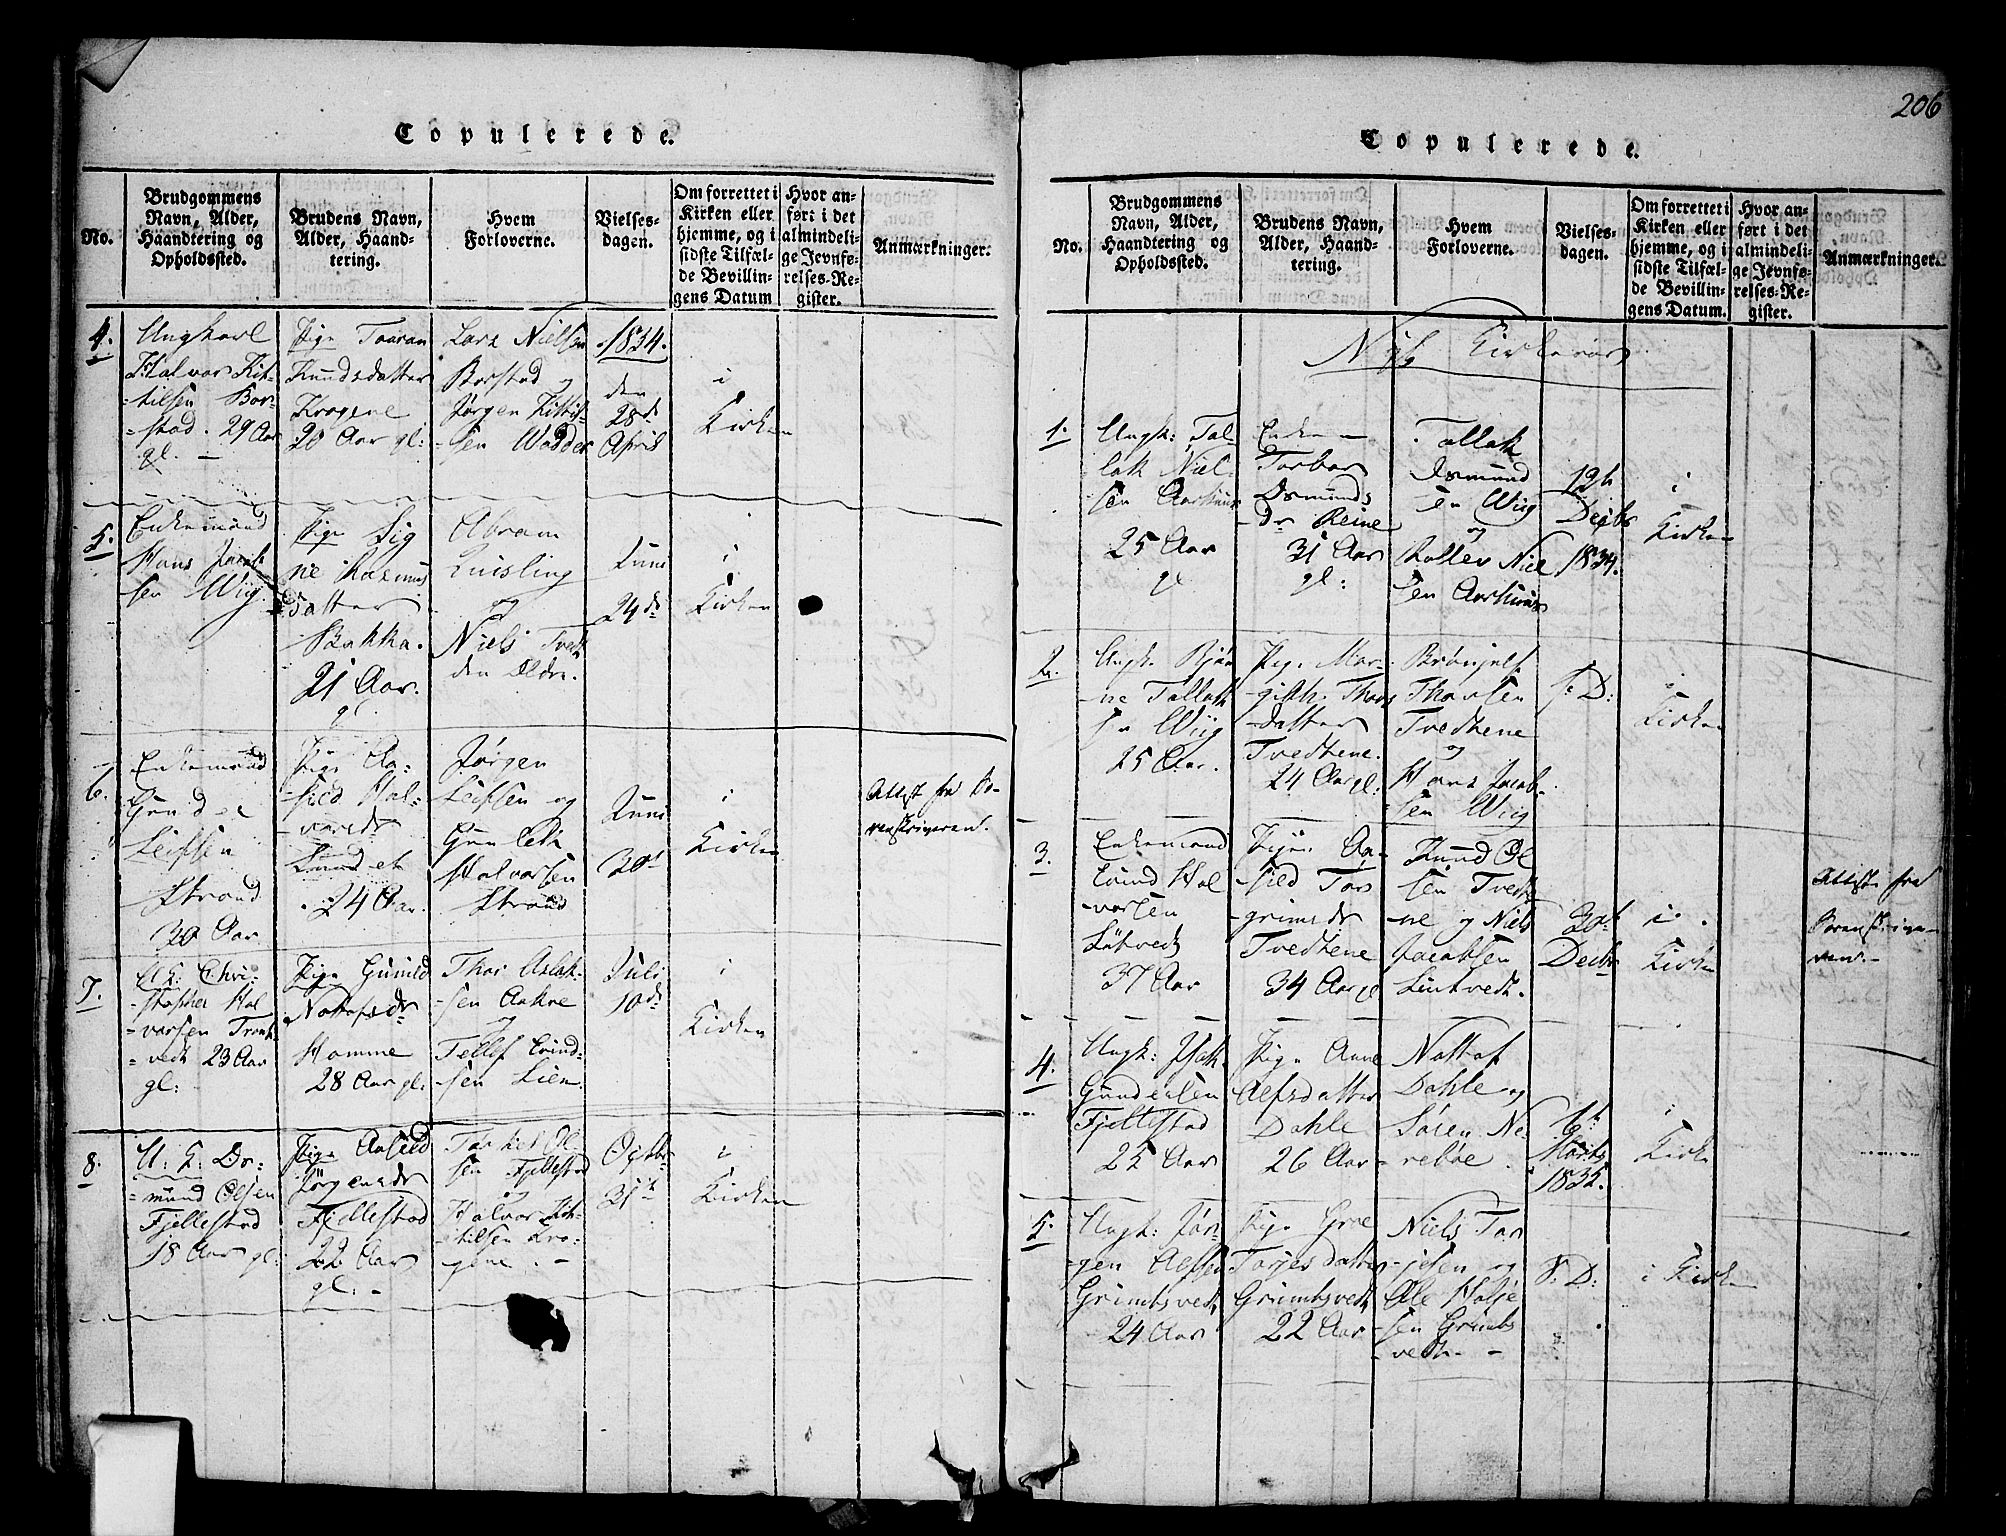 Copulerede.
No.
Brudgommens
Navn, Alder,
Haandtering og
Opholdssted.
Brudens Navn,
Alder, Haand-
tering.
Hvem
Forloverne.
Vielses-
dagen.
Om forrettet i
Kirken eller
hjemme, og i
sidste Tilfæl-
de Bevillin-
gens Datum
Hvor an-
ført i det
almindeli-
ge Jevnfø-
relses-Re-
gister.
Anmærkninger.
4.
Ungkarl
Halvor Kit-
-tilsen Bor-
-stad. 29 Aar
gl. -
Pige Taaran
Knudsdatter
Krogene
20 Aar gl:
Lars Nielsen
Borstad og
Jørgen Kittil-
-sen Wadder
1834.
den
28de
April
i
Kirken
5.
Enkemand
Hans Jacob
sen Wiig.
Pige Sig
ne Rasmus
datter
Bakka.
21 Aar.
gl
Abram
Quisling
og
Niels Tvedt
den Eldre.
Juni
24de
i
Kirken
6.
Enkemand
Leifsen
Strand
30 Aar
Pige Aa-
-sild Hal-
-vorsdr
Lundet
24 Aar.
Jørgen
Leifsen og
Halvorsen
Strand
Juni
30te
i
Kirken
Attest fra So-
renskriveren.
7.
Chri-
-stopher Hal
-vorsen Tront
-vedt 23 Aar
gl:
Pige Guneld
Nottofsdr
Homme
28 Aar gl:
Thor Aslak-
-sen Aakre
og
Tellef Evind-
-sen Lien
Juli
10de
i
Kirken
8.
U: K: Os-
-mund Olsen
Fjellestad
18 Aar gl:
Pige Aasild
Jørgensdr
Fjellestad
22 Aar
gl. -
Tarkel Ol
sen Fjellestad
og
Halvor Kit-
-tilsen Kro-
gene. -
Octbr
31te
i
Kirken
206
Copulerede.
No.
Brudgommens
Navn, Alder,
Haandtering og
Opholdssted.
Brudens Navn,
Alder, Haand-
tering.
Hvem
Forloverne.
Vielses-
dagen.
Om forrettet i
Kirken eller
hjemme, og i
sidste Tilfæl-
de Bevillin-
gens Datum.
Hvor an-
ført i det
almindeli-
ge Jevnfø-
relses-Re-
gister.
Anmærkninger.
1.
Ungk: Tal-
lak Niel-
sen Aarhuus
25 Aar
gl
Enke -
Torbor
Osmunds
-dr Reine
31 Aar
gl:
Tallak
Osmund
sen Wiig
og
Rollev Niel
sen Aarhuus
12te
Decbr
1834.
i
Kirken
2.
Ungk. Bjør
-ne Tallak
sen Wiig
25 Aar.
Pige Mar-
-gith Thors
-datter
Tvedtene.
24 Aar gl:
Thorsen
Tvedtene
og
Hans Jacob-
sen Wiig
S: D:
i
Kirken
3.
Enkemand
Evind Hal
-vorsen
37 Aar
Pige Aa-
-sild Tors
-grimsdr
Tvedtene
34 Aar gl
Knud Ol
sen Tvedte
-ne og Niels
Jacobsen
30te
Decbr
i
Kirken
Attest fra
Sorenskrive-
ren. -
4.
Ungk:
Gundersen
Fjellestad
25 Aar
Pige Anne
Alfsdatter
Dahle
26 Aar
Nottof
Dahle og
Søren Ne-
-rebøe.
6te
Marts
1835.
i
Kirke
5.
Ungk: Jør-
-gen Alfsen
Grimtsvedt
24 Aar
Pige Groe
Torjesdatter
Grimtsvedt
22 Aar
Niels Tor
-jesen og
Ole Holje
-sen Grimts
-vedt. -
S: D:
i Kirke